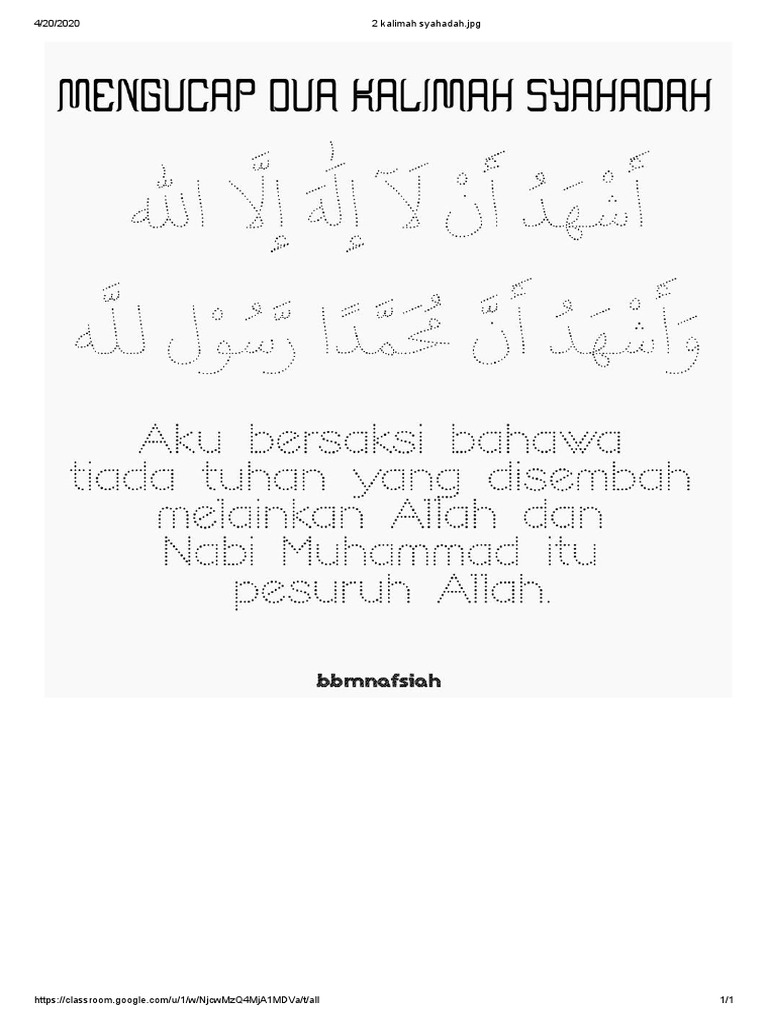 4/20/2020 2 kalimah syahadah.jpg
MENGUCAP DUA KALIMAH SYAHADAH
أَشْهَدُ أَنْ لَآ إِلٰهَ إِلَّا اللّٰه
وَأَشْهَدُ أَنَّ مُحَمَّدًا رَّسُوْل للَّه
Aku bersaksi bahawa
tiada tuhan yang disembah
melainkan Allah dan
Nabi Muhammad itu
pesuruh Allah.
bbmnafsiah
https://classroom.google.com/u/1/w/NjcwMzQ4MjA1MDVa/t/all 1/1